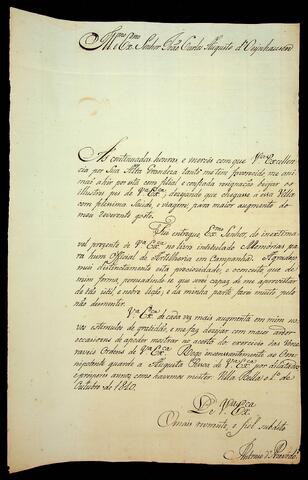 Illmo. e Exmo. Senhor João Carlos Augusto d'Oeynhausen
As continuadas honras, e mercês com que Vossa Excellen-
cia por Sua Alta Grandeza tanto me tem favorecido me ani-
mão a hir por esta com filial e confiada resignação beijar os
illustres pés de Va. Exca., dezejando que chegasse a essa Villa
com plenissima Saude, e viagem para maior augmento do
meu reverente gosto.
Fui entregue Exmo. Senhor, do inextima-
vel prezente de Va. Exca. no livro intitulado Memórias pa
ra hum Official de Artilharia em Campanha. Agradeço
mui distinctamente esta preciosidade, e conceito que de
mim forma, persuadindo-se que serei capaz de me aproveitar
de tão util, e nobre lição, e da minha parte farei muito pelo
não desmentir.
Va. Exca. de cada vez mais augmenta em mim no-
vos estimulos de gratidão, e me faz dezejar com maior ardor
occasioens de apoder mostrar no acerto do exercicio das Vene-
raveis Ordens de Va. Exca. Rogo incessantemente ao Omni-
potente guarde a Augusta Pessoa de Va. Exca. por dilatados
e prosperos annos como havemos mister. Villa Bella 1o. de
Outubro de 1810.
De Va. Exca.
O mais reverente, e fiel subdito
Antonio